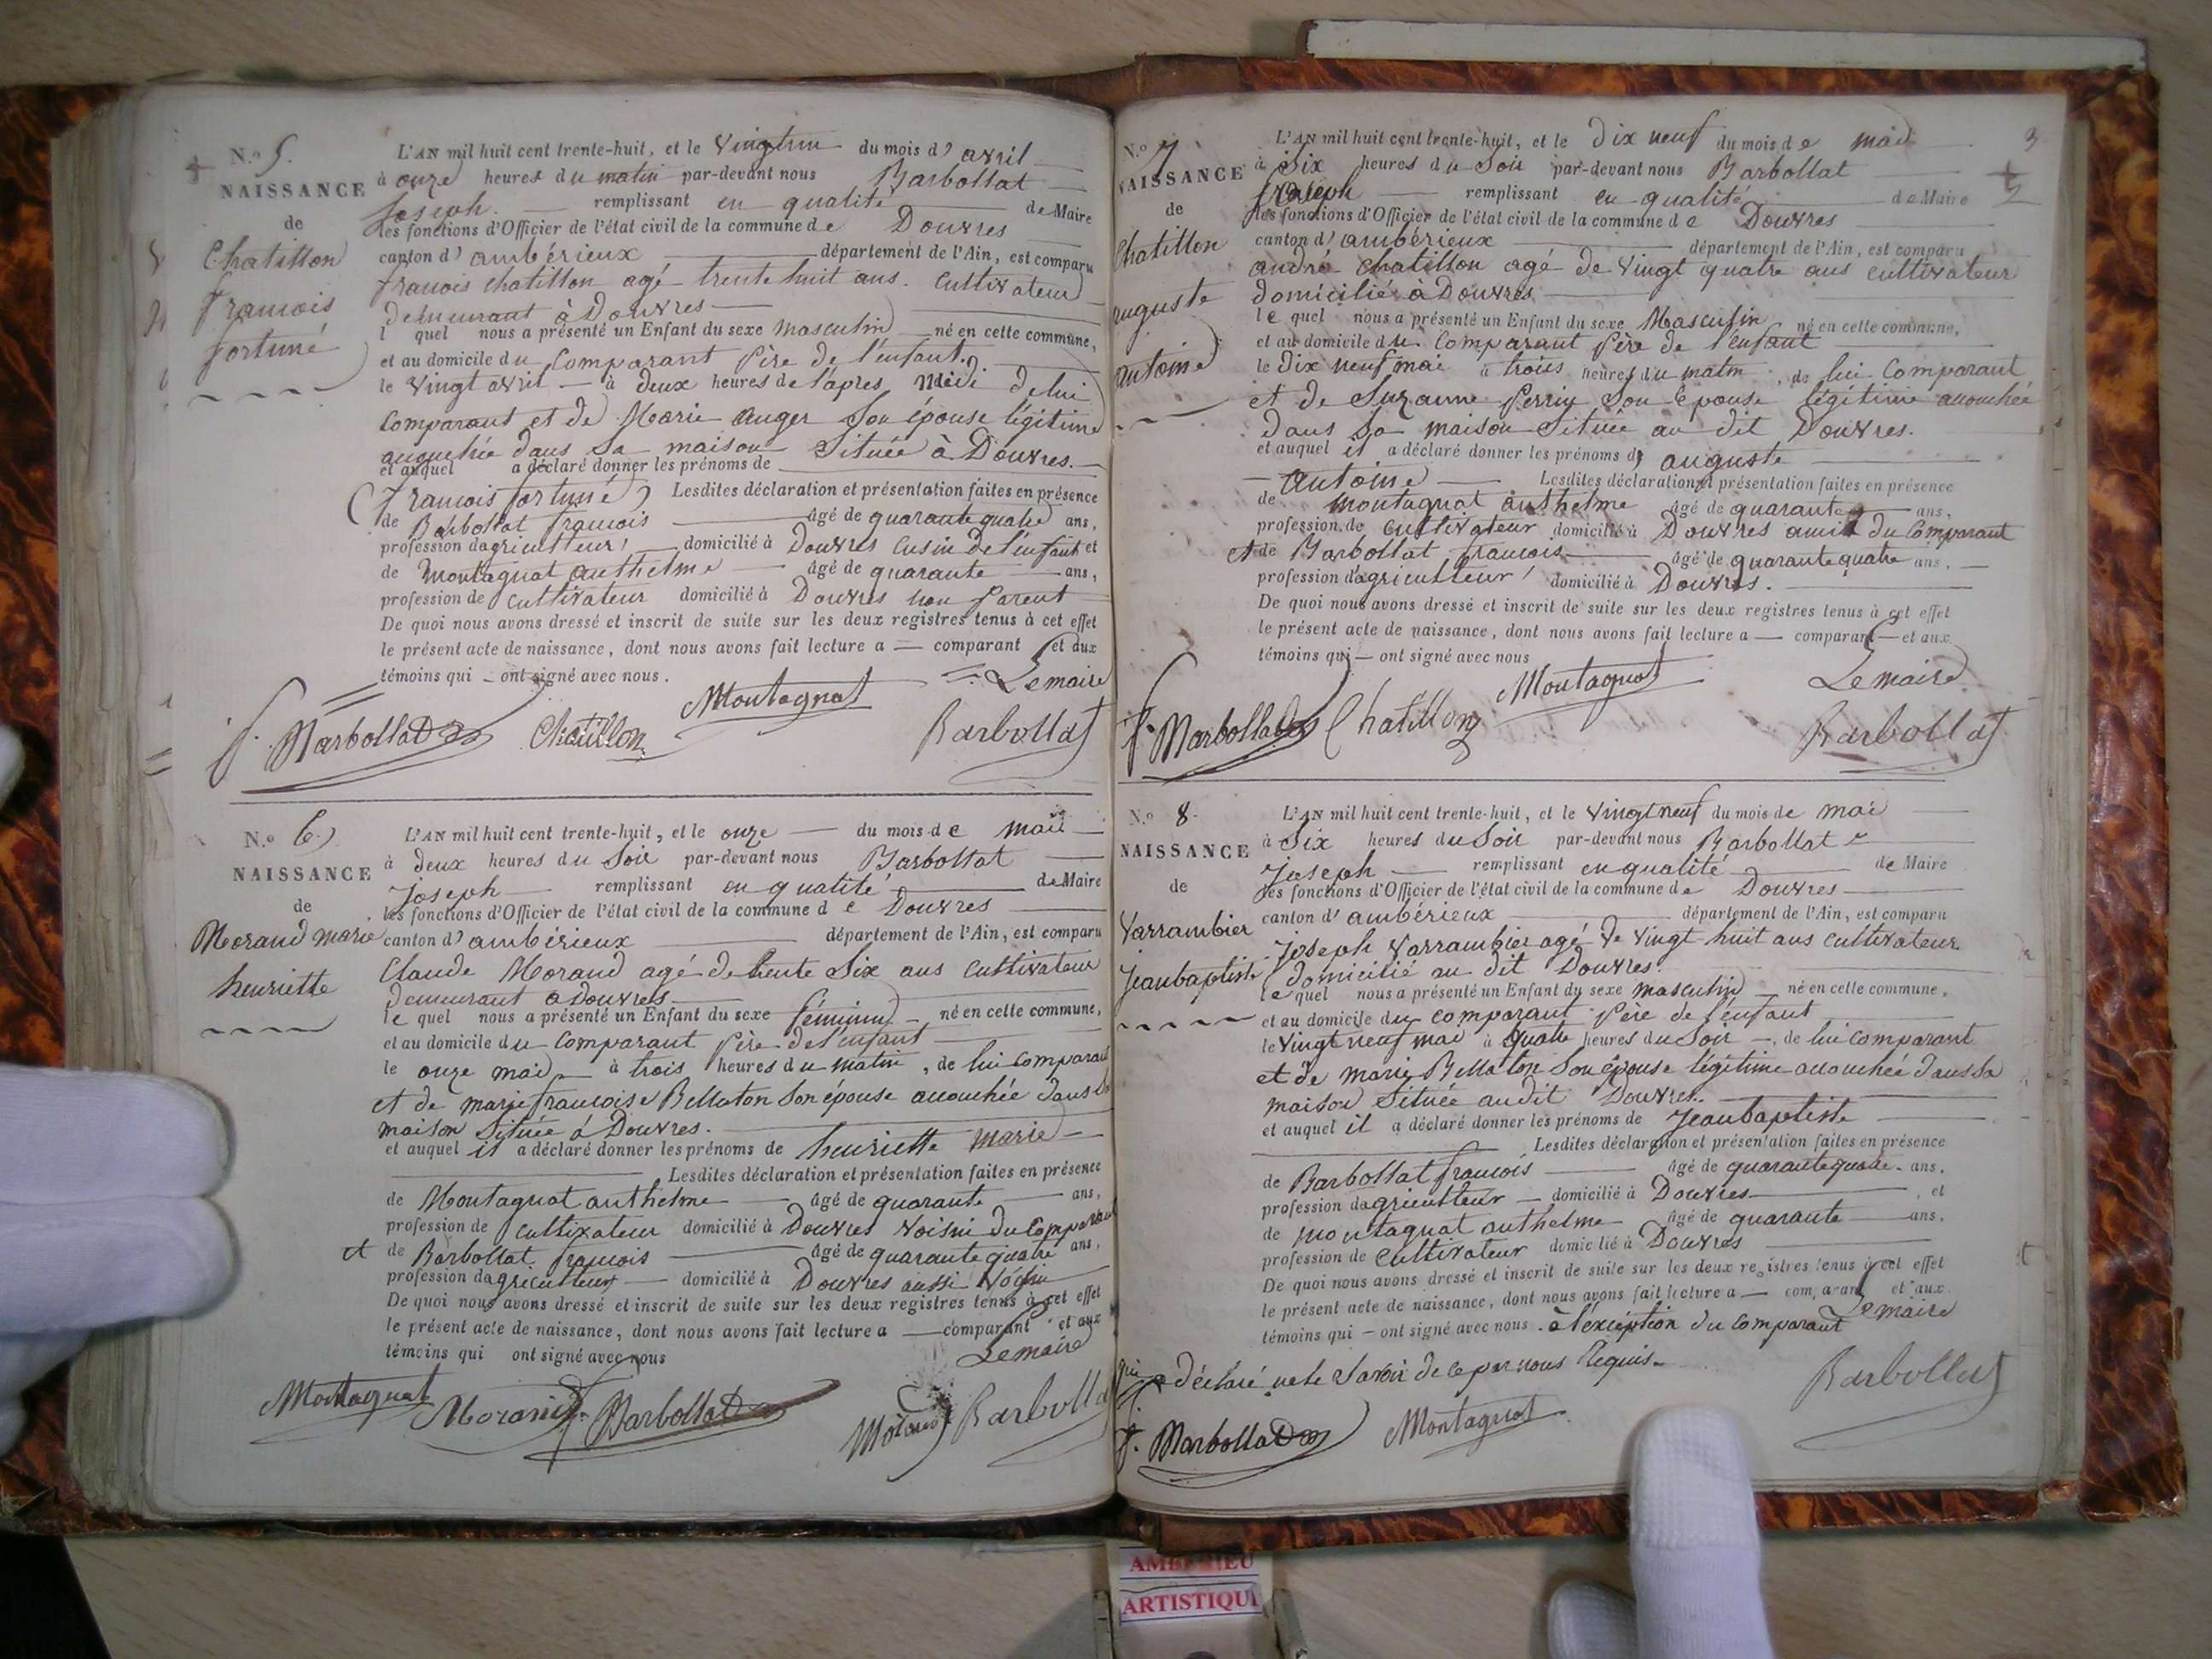 N.o 5.
NAISSANCE
de
Chatillon
francois
fortuné
L'AN mil huit cent trente-huit, et le Vingtun du mois d' avril
à onze heures du matin par-devant nous Barbollat
Joseph remplissant en qualité de Maire
les fonctions d'Officier de l'état civil de la commune de Douvres
canton d' ambérieux département de l'Ain, est comparu
francois chatillon agé trente huit ans. Cultivateur
demeurant à Douvres
l quel nous a présenté un Enfant du sexe masculin né en cette commune,
et au domicile du Comparant Père de l'enfant.
le Vingt avril à deux heures de l'apres Midi de lui
Comparant et de Marie Auger Son épouse légitime
accouchée dans Sa maison Située à Douvres.
et auquel a déclaré donner les prénoms de
(francois fortuné) Lesdites déclaration et présentation faites en présence
de Barbollat francois âgé de quarante quatre ans,
profession dagriculteur domicilié à Douvres Cusin de l'enfant et
de Montagnat anthelme âgé de quarante ans,
profession de Cultivateur domicilié à Douvres non Parent
De quoi nous avons dressé et inscrit de suite sur les deux registres tenus à cet effet
le présent acte de naissance, dont nous avons fait lecture a comparant et aux
témoins qui ont signé avec nous.
Lemaire
f. Barbollat Chatillon Montagnat Barbollat
N.o 6
NAISSANCE
de
Morand marie
henriette
L'AN mil huit cent trente-huit, et le onze du mois de mai
à deux heures du Soir par-devant nous Barbollat
Joseph remplissant en qualité de Maire
les fonctions d'Officier de l'état civil de la commune de Douvres
canton d' ambérieux département de l'Ain, est comparu
Claude Morand agé de trente Six ans Cultivateur
demeurant à Douvres
le quel nous a présenté un Enfant du sexe féminin né en cette commune,
et au domicile du Comparant Père de l'enfant
le onze mai à trois heures du matin, de lui Comparant
et de marie francoise Bellaton Son épouse accouchée dans sa
maison Située à Douvres.
et auquel il a déclaré donner les prénoms de henriette marie
Lesdites déclaration et présentation faites en présence
de Montagnat anthelme âgé de quarante ans,
profession de Cultivateur domicilié à Douvres Voisin du Comparant
et de Barbollat francois âgé de quarante quatre ans,
profession dagriculteur domicilié à Douvres aussi Voisin
De quoi nous avons dressé et inscrit de suite sur les deux registres tenus à cet effet
le présent acte de naissance, dont nous avons fait lecture a comparant et aux
témoins qui ont signé avec nous
Lemaire
Montagnat Morand f. Barbollat Morand Barbollat
3
N.o 7
NAISSANCE
de
Chatillon
auguste
antoine
L'AN mil huit cent trente-huit, et le Dix neuf du mois de mai
à Six heures du Soir par-devant nous Barbollat
Joseph remplissant en qualité de Maire
les fonctions d'Officier de l'état civil de la commune de Douvres
canton d' ambérieux département de l'Ain, est comparu
andré Chatillon agé de Vingt quatre ans Cultivateur
domicilié à Douvres
le quel nous a présenté un Enfant du sexe Masculin né en cette commune,
et au domicile du Comparant Père de l'enfant
le Dix neuf mai à trois heures du matin, de lui Comparant
et de Suzanne Perrin Son épouse légitime accouchée
dans Sa maison Située au dit Douvres.
et auquel il a déclaré donner les prénoms d auguste
Antoine Lesdites déclaration et présentation faites en présence
de Montagnat anthelme âgé de quarante ans,
profession de Cultivateur domicilié à Douvres amis du Comparant
et de Barbollat francois âgé de quarante quatre ans,
profession dagriculteur domicilié à Douvres.
De quoi nous avons dressé et inscrit de suite sur les deux registres tenus à cet effet
le présent acte de naissance, dont nous avons fait lecture a comparant et aux
témoins qui ont signé avec nous
Lemaire
f. Barbollat Chatillon Montagnat Barbollat
N.o 8
NAISSANCE
de
Varrambier
Jeanbaptiste
L'AN mil huit cent trente-huit, et le Vingt neuf du mois de mai
à Six heures du Soir par-devant nous Barbollat
Joseph remplissant en qualité de Maire
les fonctions d'Officier de l'état civil de la commune de Douvres
canton d' ambérieux département de l'Ain, est comparu
Joseph Varrambier agé de Vingt huit ans Cultivateur
domicilié au dit Douvres.
le quel nous a présenté un Enfant du sexe masculin né en cette commune,
et au domicile du comparant Père de l'enfant
le Vingt neuf mai à quatre heures du Soir, de lui comparant
et de marie Bellaton Son épouse légitime accouchée dans Sa
maison Située au dit Douvres.
et auquel il a déclaré donner les prénoms de Jeanbaptiste
Lesdites déclaration et présentation faites en présence
de Barbollat francois âgé de quarante quatre ans,
profession dagriculteur domicilié à Douvres, et
de montagnat anthelme âgé de quarante ans,
profession de Cultivateur domicilié à Douvres
De quoi nous avons dressé et inscrit de suite sur les deux registres tenus à cet effet
le présent acte de naissance, dont nous avons fait lecture a comparant et aux
témoins qui ont signé avec nous. à l'exception du Comparant
qui a déclaré ne le Savoir de ce par nous Requis.
Lemaire
f. Barbollat Montagnat Barbollat
ARTISTIQU